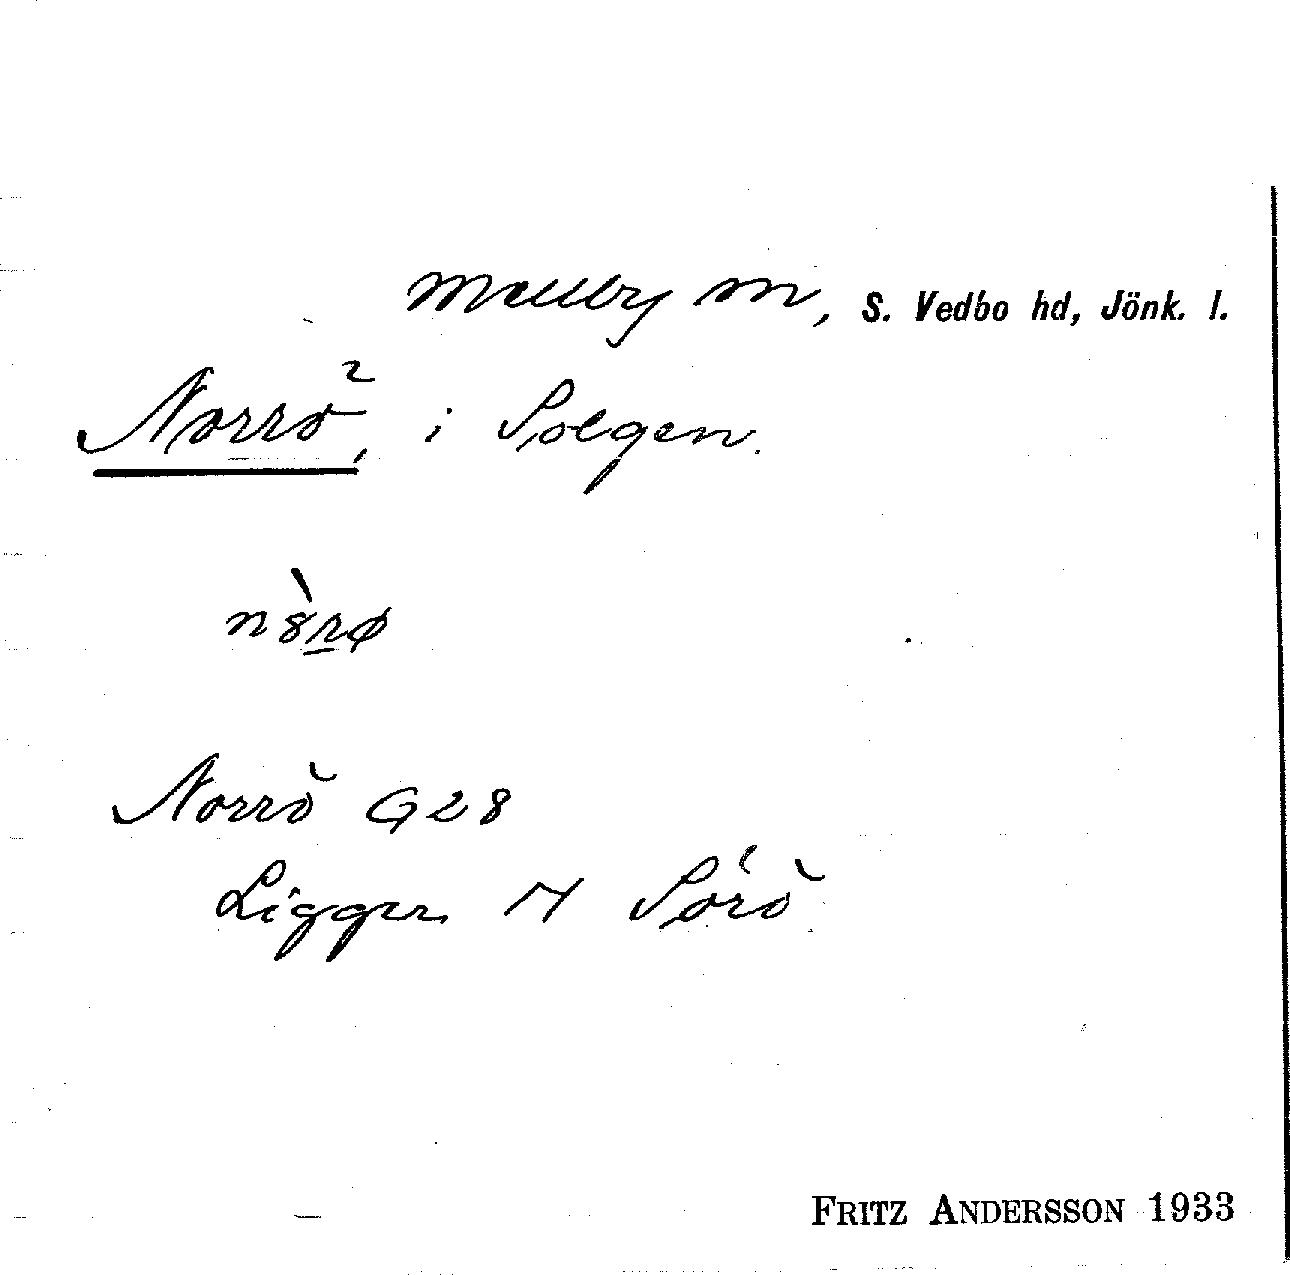 Mellby sn, S. Vedbo hd, Jönk. l.
Norrö², i Solgen.
n8̀r̲ø
Norrö G28
Ligger N Sörö
FRITZ ANDERSSON 1933